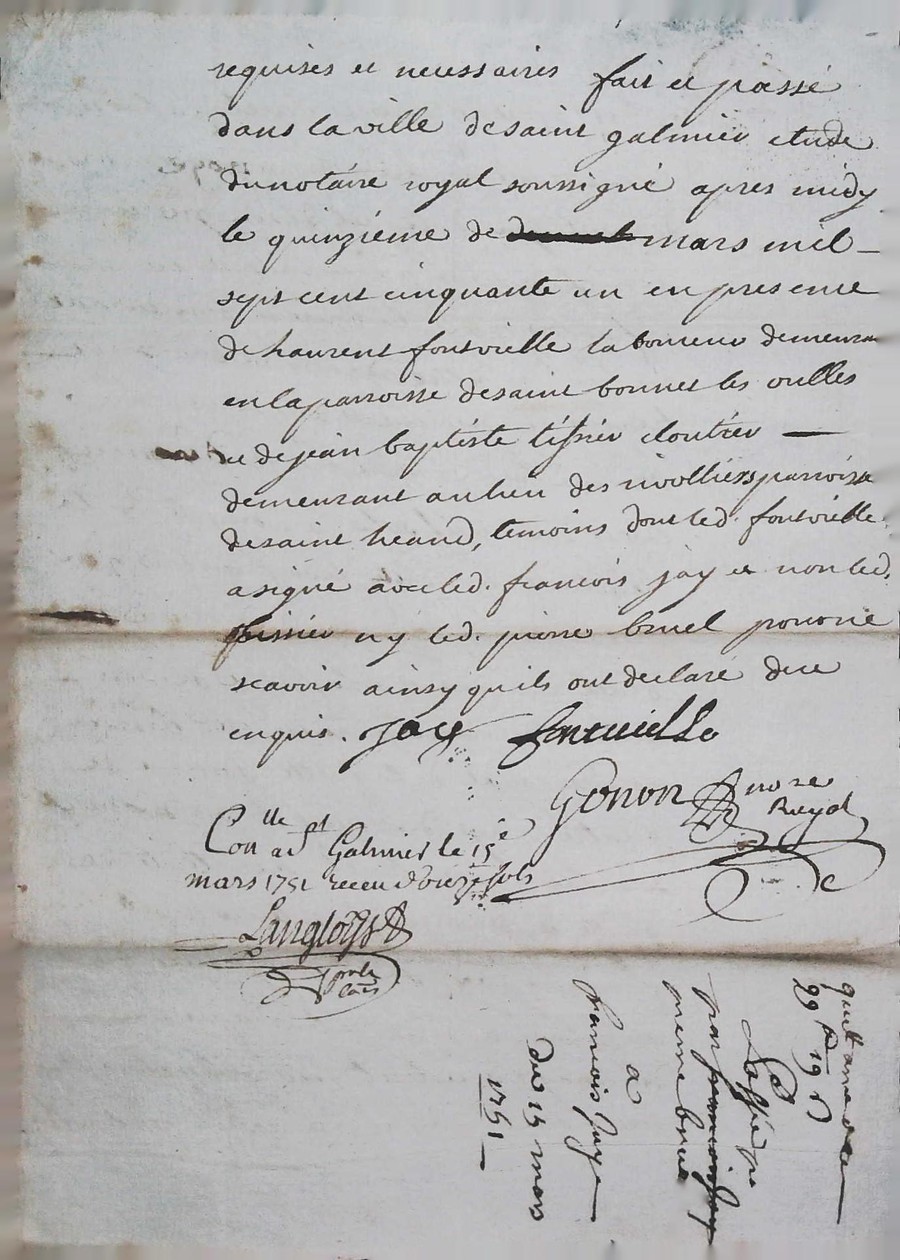 requises et necessaires fait et passé
dans la ville de saint galmier etude
du notaire royal soussigné apres midy
le quinzieme de mars mil
sept cent cinquante un en presence
de laurent fontvielle laboureur demeurant
en la parroisse de saint bonnet les oulles
et de jean baptiste tissier cloutier
demeurant au lieu des rivolliers parroisse
de saint heand, temoins dont led. fontvielle
a signé avec led. francois jay et non led.
tissier ny led. pierre bruel pour ne
scavoir ainsy quils ont declaré de ce
enquis. Jaÿ fontvielle
Gonon nore
Royal
Conlle a St Galmier le 15e
mars 1751 receu douze sols
Langloys
quittance de
99 lt 19 s
passée
par francois jay
pierre bruel
a
francois Jaye
du 15 mars
1751